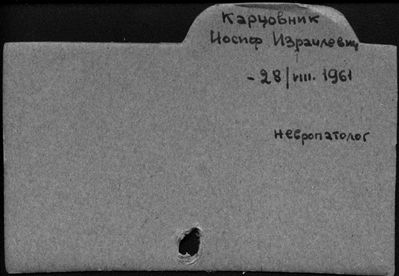 Карцовник
Иосиф Израилевич
- 28/VIII. 1961
невропатолог